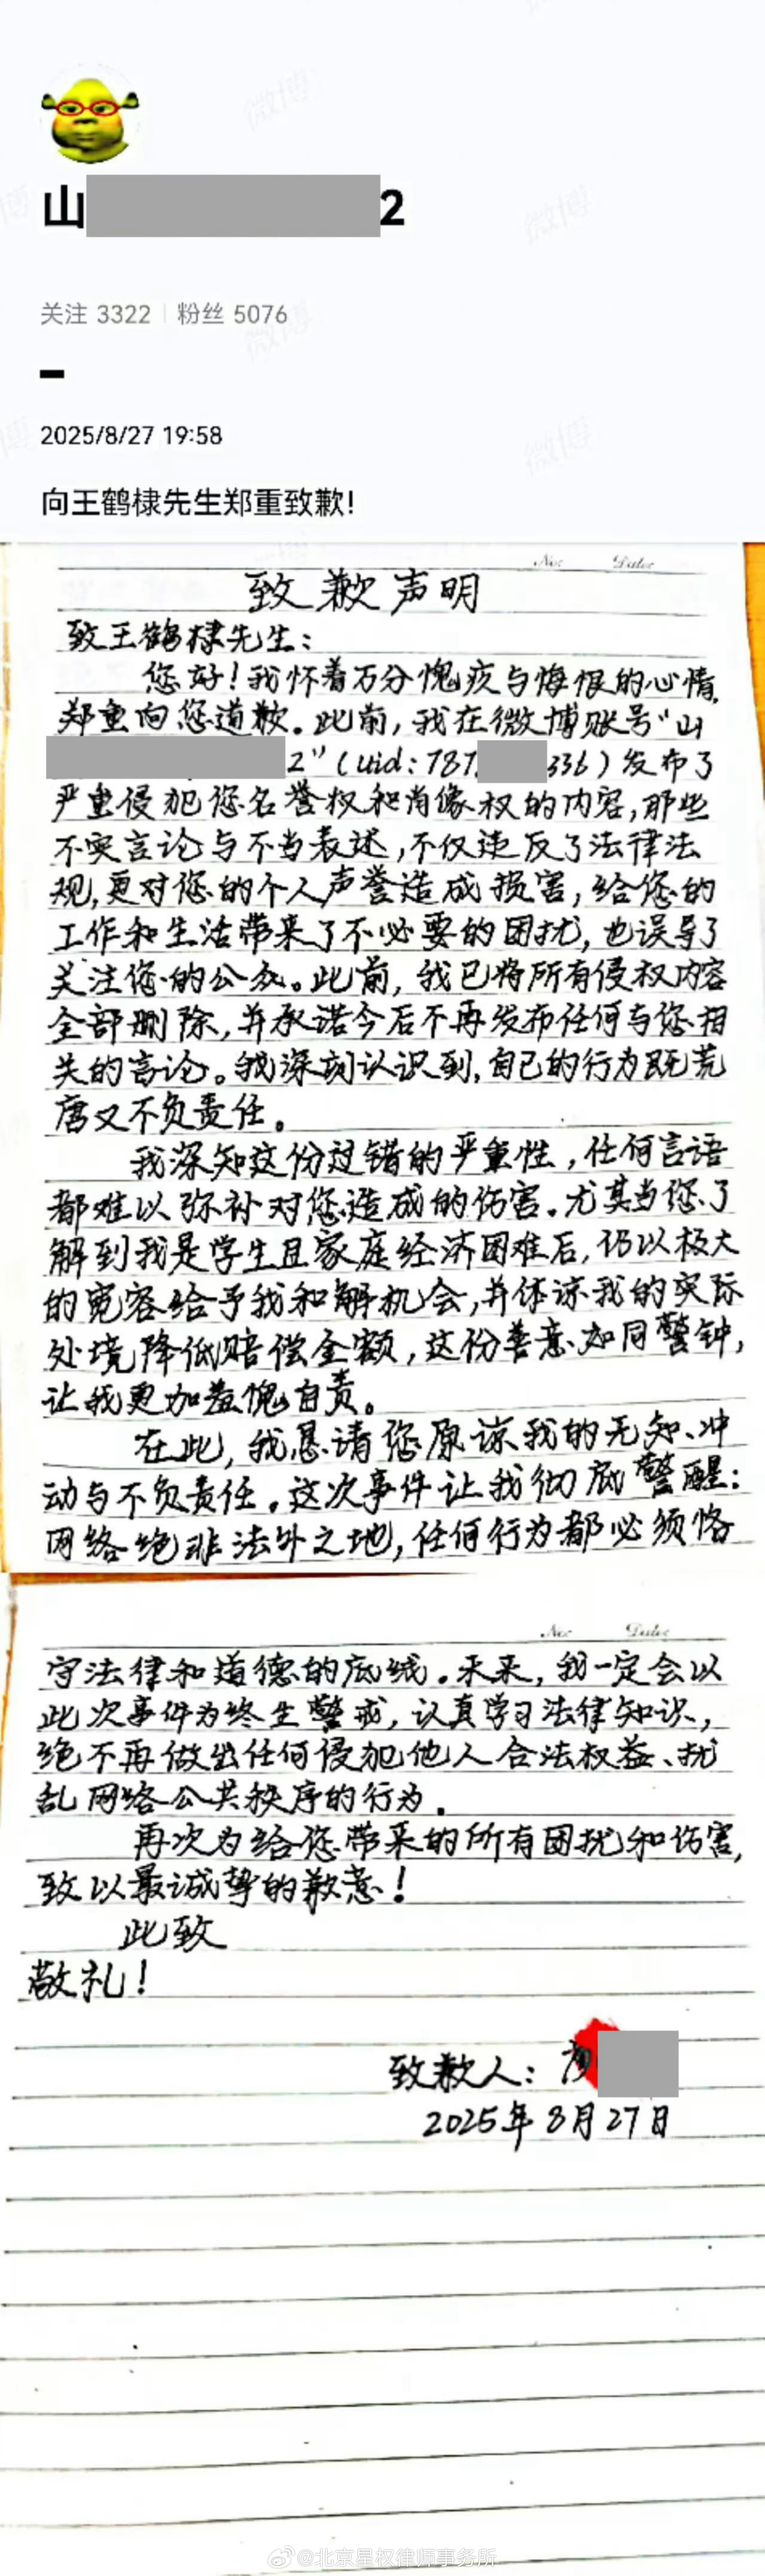 山 2
关注 3322 | 粉丝 5076
2025/8/27 19:58
向王鹤棣先生郑重致歉!
No: Date:
致歉声明
致王鹤棣先生：
您好！我怀着万分愧疚与悔恨的心情,
郑重向您道歉。此前，我在微博账号“山
2”(uid:787 336）发布了
严重侵犯您名誉权和肖像权的内容，那些
不实言论与不当表述，不仅违反了法律法
规，更对您的个人声誉造成损害，给您的
工作和生活带来了不必要的困扰，也误导了
关注您的公众。此前，我已将所有侵权内容
全部删除，并承诺今后不再发布任何与您相
关的言论。我深刻认识到，自己的行为既荒
唐又不负责任。
我深知这份过错的严重性，任何言语
都难以弥补对您造成的伤害。尤其当您了
解到我是学生且家庭经济困难后，仍以极大
的宽容给予我和解机会，并体谅我的实际
处境降低赔偿金额，这份善意如同警钟，
让我更加羞愧自责。
在此，我恳请您原谅我的无知、冲
动与不负责任。这次事件让我彻底警醒：
网络绝非法外之地，任何行为都必须恪
No: Date:
守法律和道德的底线。未来，我一定会以
此次事件为终生警戒，认真学习法律知识，
绝不再做出任何侵犯他人合法权益、扰
乱网络公共秩序的行为。
再次为给您带来的所有困扰和伤害，
致以最诚挚的歉意！
此致
敬礼！
致歉人：
2025年8月27日
@北京星权律师事务所
微博